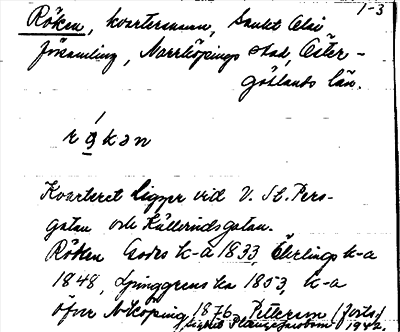 1-3
Röken, kvartersnamn, Sankt Olai
församling, Norrköpings stad, Öster-
götlands län.
rökən
Kvarteret ligger vid V. St. Pers-
gatan och Källvindsgatan.
Röken Godes k-a 1833, Ehrlings k-a
1848, Ljunggrens ka 1853, k-a
öfver N-köping 1876, Pettersson (forts)
1942.